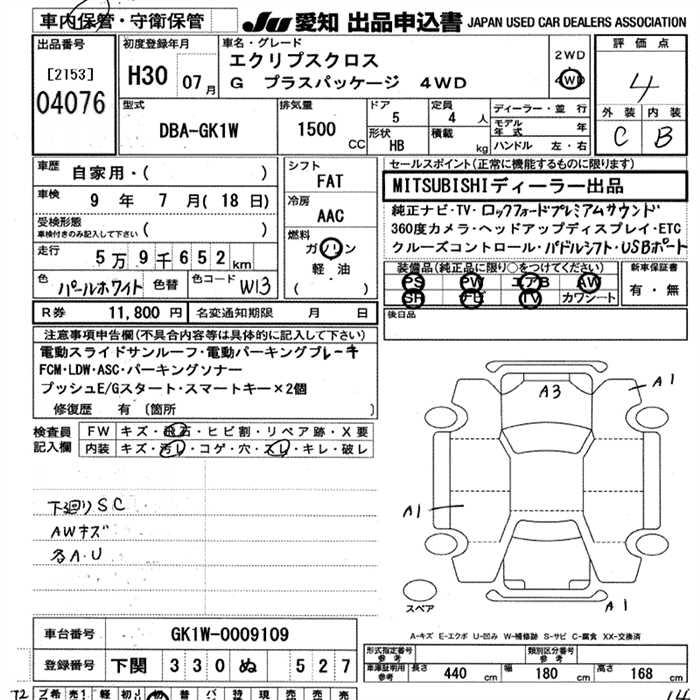 車内保管・守衛保管
JU 愛知 出品申込書 JAPAN USED CAR DEALERS ASSOCIATION
出品番号
[2153]
04076
初度登録年月
H30 07月
車名・グレード
エクリプスクロス
G プラスパッケージ 4WD
2WD
4WD
評価点
4
外装 内装
C B
型式
DBA-GK1W
排気量
1500 CC
ドア
5
定員
4人
形状
HB
積載
kg
ディーラー・並行
モデル年式 年
ハンドル 左・右
車歴
自家用・( )
車検
9年 7月(18日)
受検形態
車検付きのみ記入して下さい ( )
走行
5万9千652km
色
パールホワイト
色替
色コード
W13
シフト
FAT
冷房
AAC
燃料
ガソリン
軽油
( )
セールスポイント(正常に機能するものに限ります)
MITSUBISHIディーラー出品
純正ナビ・TV・ロックフォードプレミアムサウンド
360度カメラ・ヘッドアップディスプレイ・ETC
クルーズコントロール・パドルシフト・USBポート
装備品(純正品に限り○をつけてください)
PS PW エアB AW
SR ナビ TV カワシート
新車保証書
有・無
R券 11,800円
名変通知期限 月 日
後日品
注意事項申告欄(不具合内容等は具体的に記入して下さい)
電動スライドサンルーフ・電動パーキングブレーキ
FCM・LDW・ASC・パーキングソナー
プッシュE/Gスタート・スマートキー×2個
修復歴 有 〔箇所 〕
検査員記入欄
FW キズ・飛石・ヒビ割・リペア跡・X要
内装 キズ・汚レ・コゲ・穴・スレ・キレ・破レ
下廻りSC
AWキズ
各A.U
A3
A1
A1
A1
スペア
A-キズ E-エクボ U-凹み W-補修跡 S-サビ C-腐食 XX-交換済
車台番号
GK1W-0009109
登録番号
下関 330 ぬ 527
形式指定番号
参考
類別区分番号
参考
車庫証明用
参考
長さ 440 cm
幅 180 cm
高さ 168 cm